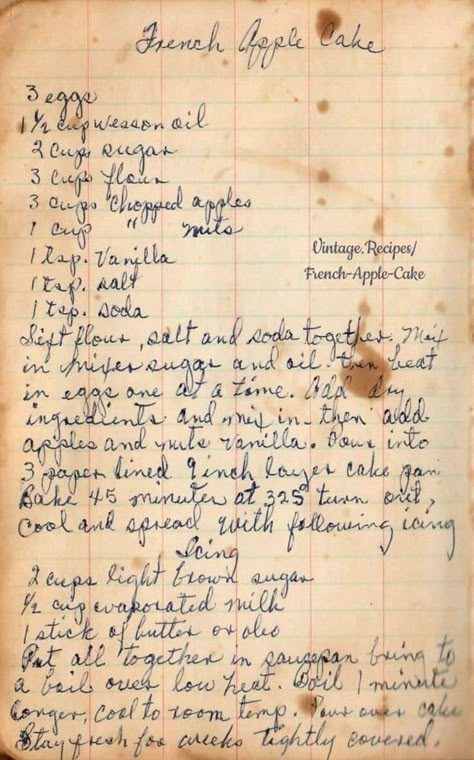 French Apple Cake
3 eggs
1 1/2 cup wesson oil
2 cups sugar
3 cups flour
3 cups chopped apples
1 cup " nuts
1 tsp. Vanilla
1 tsp. salt
1 tsp. soda
Vintage.Recipes/
French-Apple-Cake
Sift flour, salt and soda together. Mix
in mixer sugar and oil. then beat
in eggs one at a time. Add dry
ingredients and mix in then add
apples and nuts vanilla. Pour into
3 paper lined 9 inch layer cake pan
Bake 45 minutes at 325° turn out,
Cool and spread with following icing
Icing
2 cups light brown sugar
1/2 cup evaporated milk
1 stick of butter or oleo
Put all together in saucepan bring to
a boil over low heat. Boil 1 minute
longer, cool to room temp. Pour over cake
Stay fresh for weeks tightly covered.